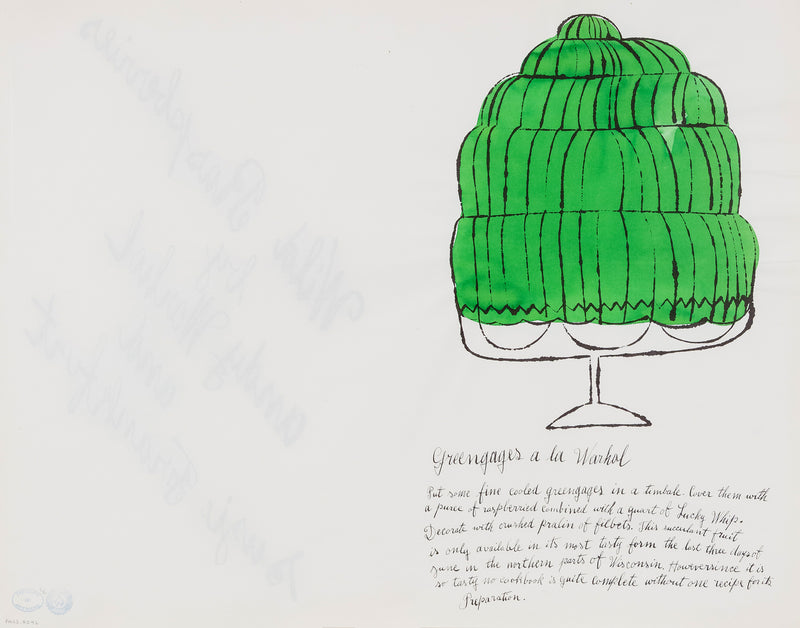 Greengages a la Warhol
Put some fine cooled greengages in a timbale. Cover them with
a puree of raspberried combined with a quart of Lucky Whip.
Decorate with crushed pralin of filberts. This succulant fruit
is only available in its most tasty form the last three days of
June in the northern parts of Wisconsin. Howeversince it is
so tasty no cookbook is quite complete without one recipe for its
Preparation.
Wild Raspberries
by
andy Warhol
and
Suzie Frankfurt